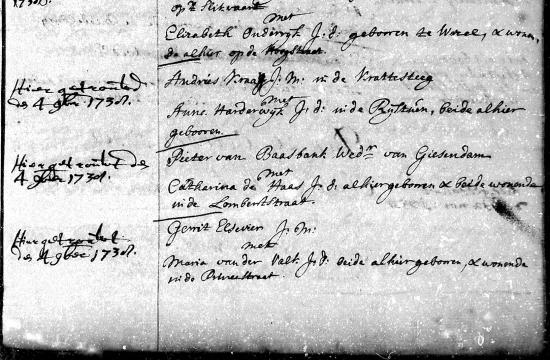 op't Slikvaert
met
Elizabeth Onderwyk J: d: gebooren te Werel, & wonen,
de alhier op de Hoogstraat.
Hier getrouwd
de 4 9ber 1738.
Andries Kraay J: M: in de Krattesteeg
met
Anna Harderwyk J: d: in de Rystuin, beide alhier
gebooren.
Hier getrouwt de
4 9ber 1738.
Pieter van Baasbank Wedr van Giesendam
met
Catharina de Haas J: d: alhier gebooren & beide wonende
in de Lombertstraat.
Hier getrouwt
de 4 9ber 1738.
Gerrit Elsevier J: M:
met
Maria van der Valk J: d: beide alhier gebooren, & wonende
in de Princestraat.